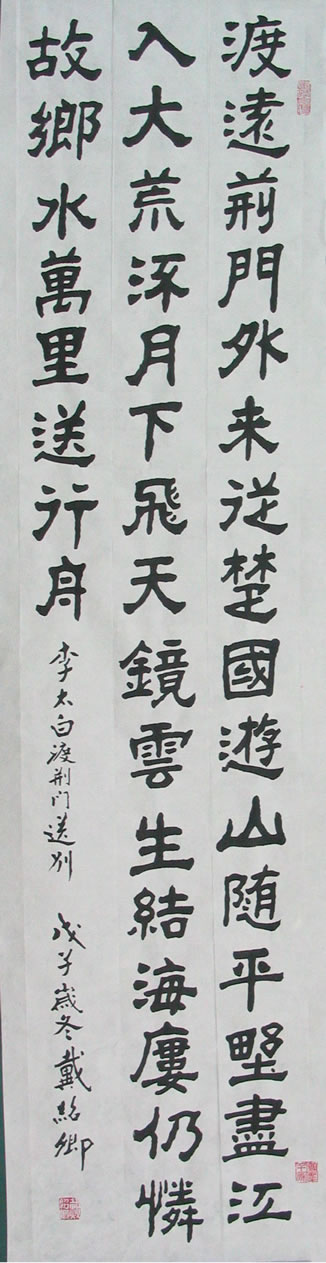 渡遠荊門外来従楚國遊山随平野盡江
入大荒流月下飛天鏡雲生結海廔仍憐
故鄉水萬里送行舟 李太白渡荆门送别 戊子歲冬戴紹卿